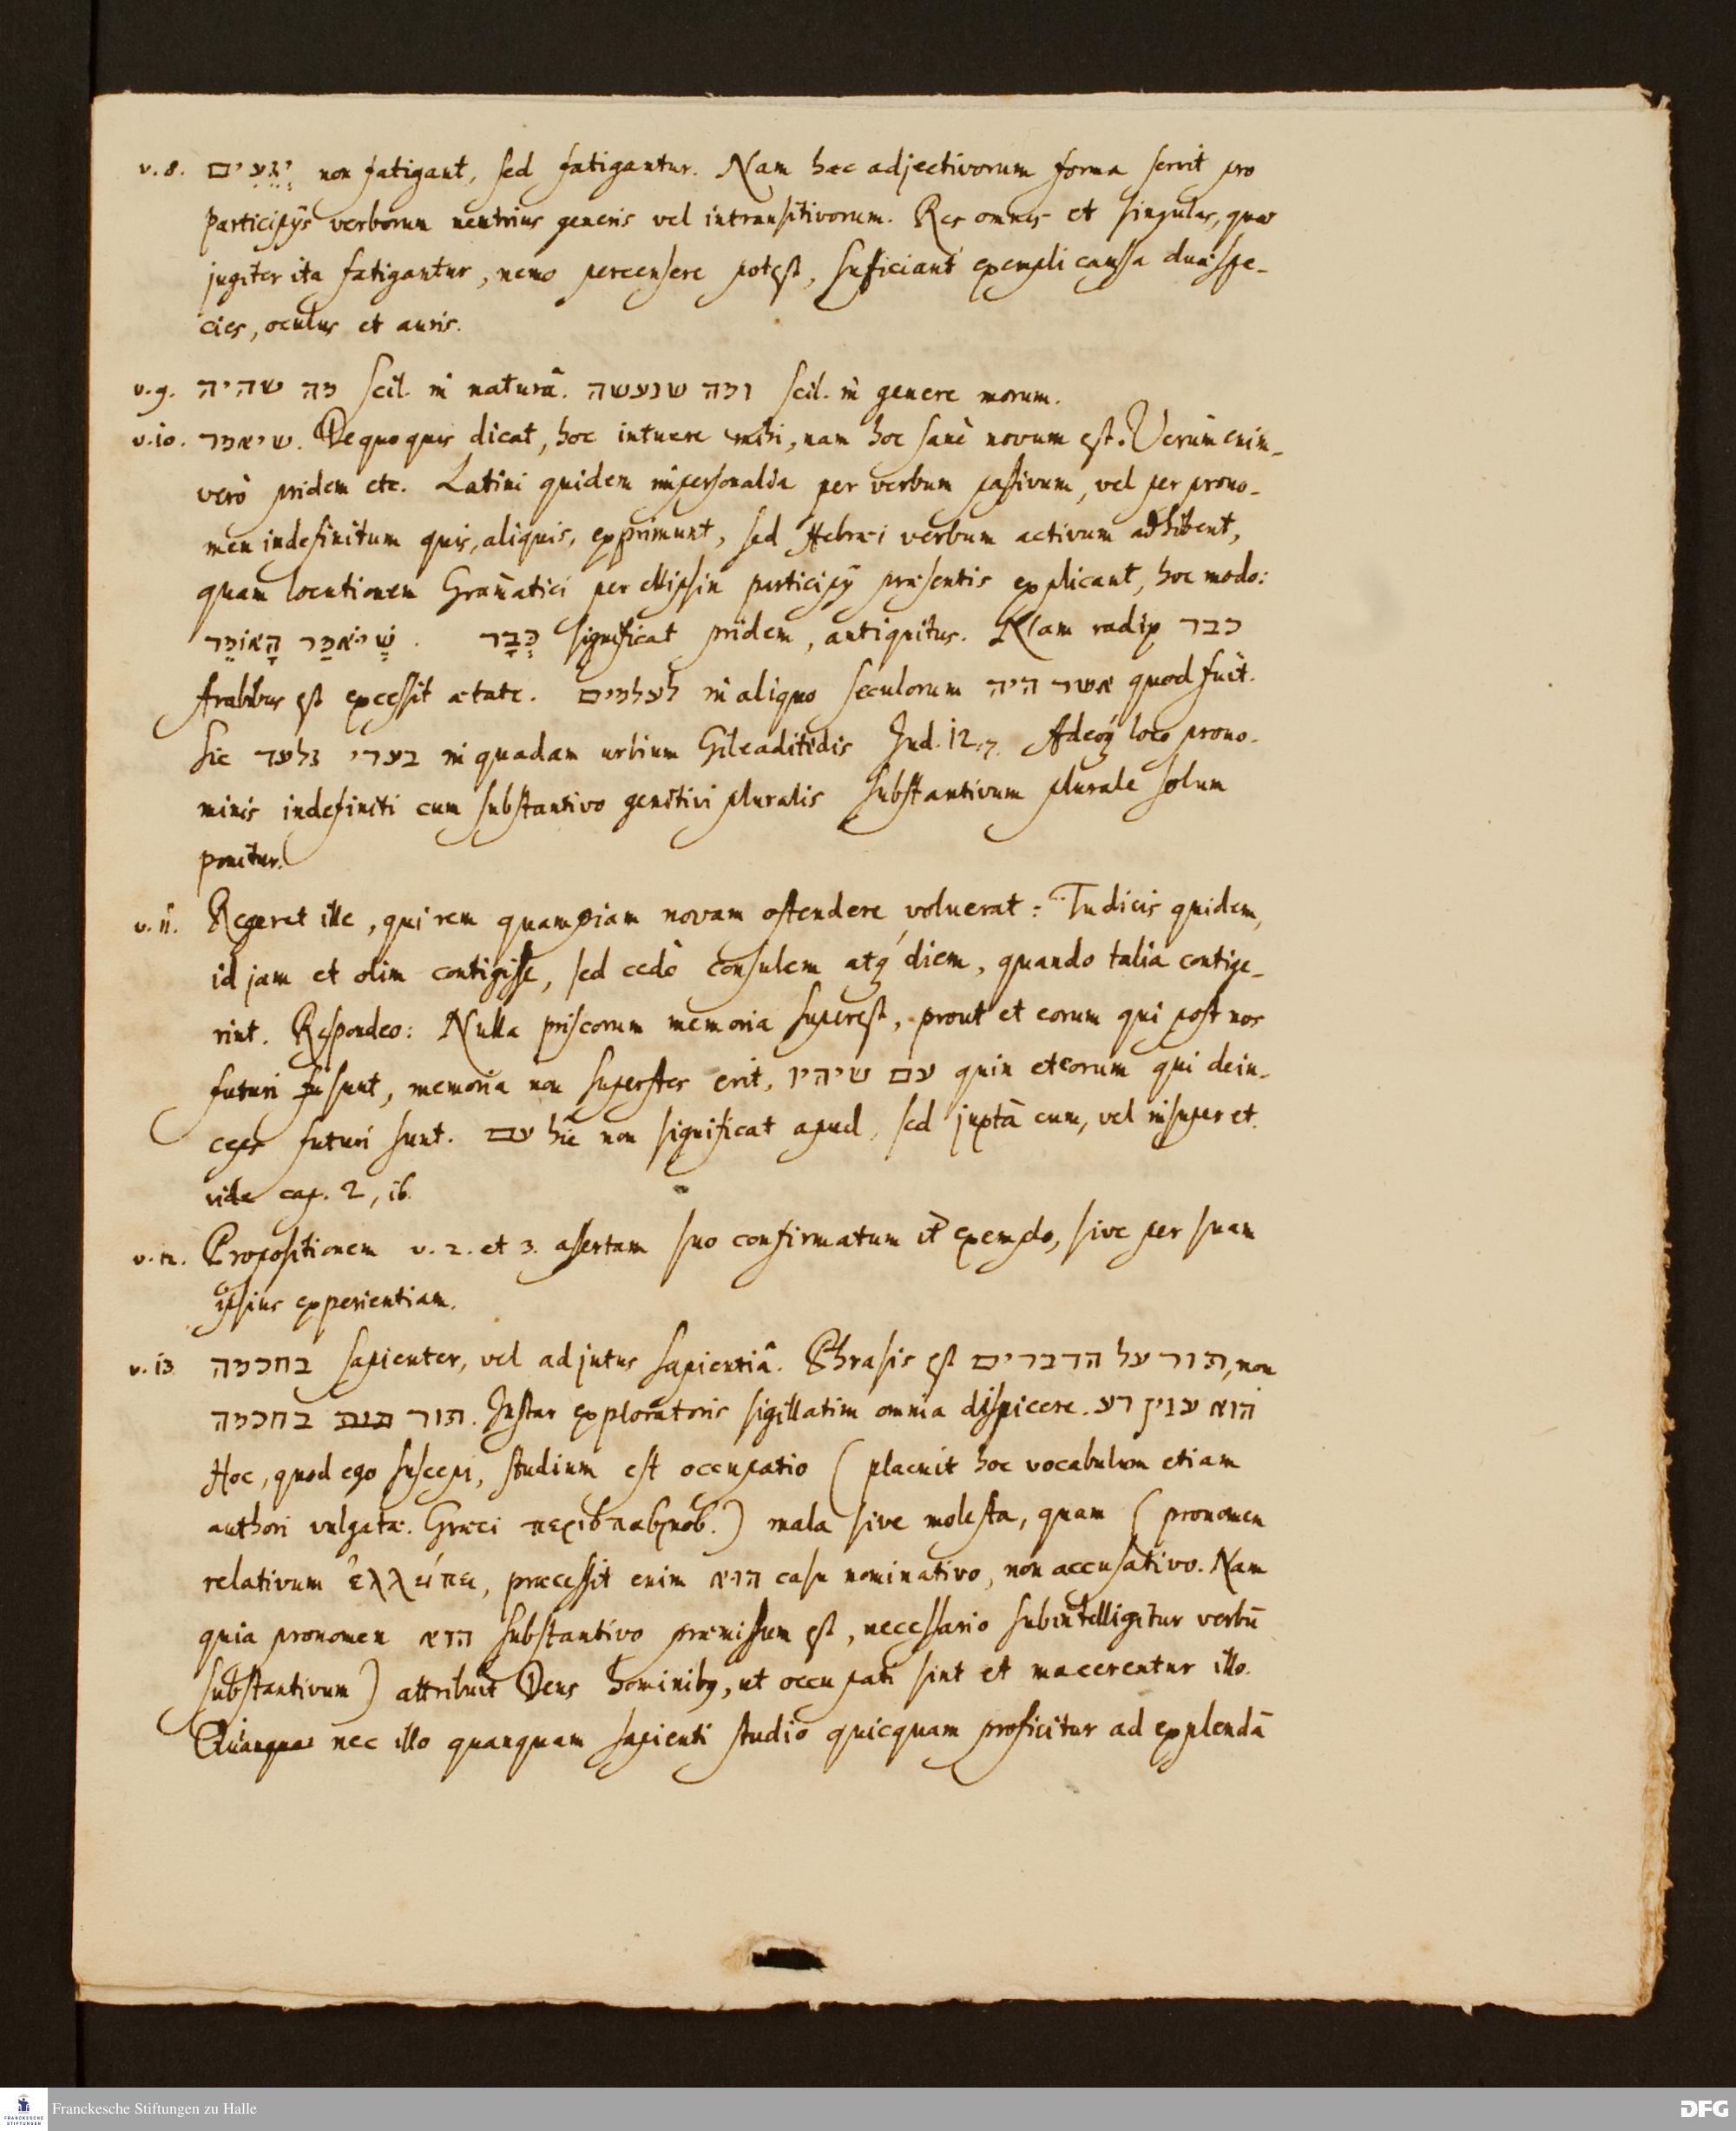 v. 8. יְגֵעִים non fatigant, sed fatigantur. Nam hæc adjectivorum forma servit pro
participijs verborum neutrius generis vel intransitivorum. Res omnes et singulas, quæ
jugiter ita fatigantur, nemo percensere potest, suficiant exempli caussa duæ spe-
cies, oculus et auris.
v. 9. מה שהיה scil. in naturâ. ומה שנעשה scil. in genere morum.
v. 10. שיאמר. De quo quis dicat, hoc intuere mihi, nam hoc sanè novum est. Verùm enim-
verò pridem etc. Latini quidem impersonalia per verbum passivum, vel per prono-
men indefinitum quis, aliquis, exprimunt, sed Hebræi verbum activum adhibent,
quam locutionem Gram̄atici per ellipsin participij præsentis explicant, hoc modo:
שֶׁיֹּאמַר הָאוֹמֵר . כְּבָר significat pridem, antiquitus. Nam radix כבר
Arabibus est excessit ætate. לעלמים in aliquo seculorum אשר היה quod fuit.
Sic בערי גלעד in quadam urbium Gileaditidis Jud. 12. 7. Adeoq́ loco prono-
minis indefiniti cum substantivo genitivi pluralis substantivum plurale solum
ponitur.
v. 11. Regeret ille, qui rem quampiam novam ostendere voluerat: Tu dicis quidem,
id jam et olim contigisse, sed cedò consulem atq́ diem, quando talia contige-
rint. Respondeo: Nulla priscorum memoria superest, prout et eorum qui post nos
futuri sunt, memoria non superstes erit, עם שיהיו quin et eorum qui dein-
ceps futuri sunt. עם hîc non significat apud, sed juxtà cum, vel insuper et.
vide cap. 2, 16.
v. 12. Propositionem v. 2. et 3. assertam suo confirmatum it exemplo, sive per suam
ipsius experientiam.
v. 13 בחכמה sapienter, vel adjutus sapientiâ. Phrasis est תור על הדברים, non
תור בחכמה. Instar exploratoris sigillatim omnia dispicere. הוא ענין רע
Hoc, quod ego suscepi, studium est occupatio (placuit hoc vocabulum etiam
authori vulgatæ. Græci ) mala sive molesta, quam (pronomen
relativum ἐλλείπει, præcessit enim הוא casu nominativo, non accusativo. Nam
quia pronomen הוא substantivo præmissum est, necessario subintelligitur verbū
substantivum) attribuit Deus hominibq, ut occupati sint et macerentur illo.
nec illo quanquam sapienti studio quicquam proficitur ad explendā
Franckesche Stiftungen zu Halle
FRANCKESCHE
STIFTUNGEN
DFG